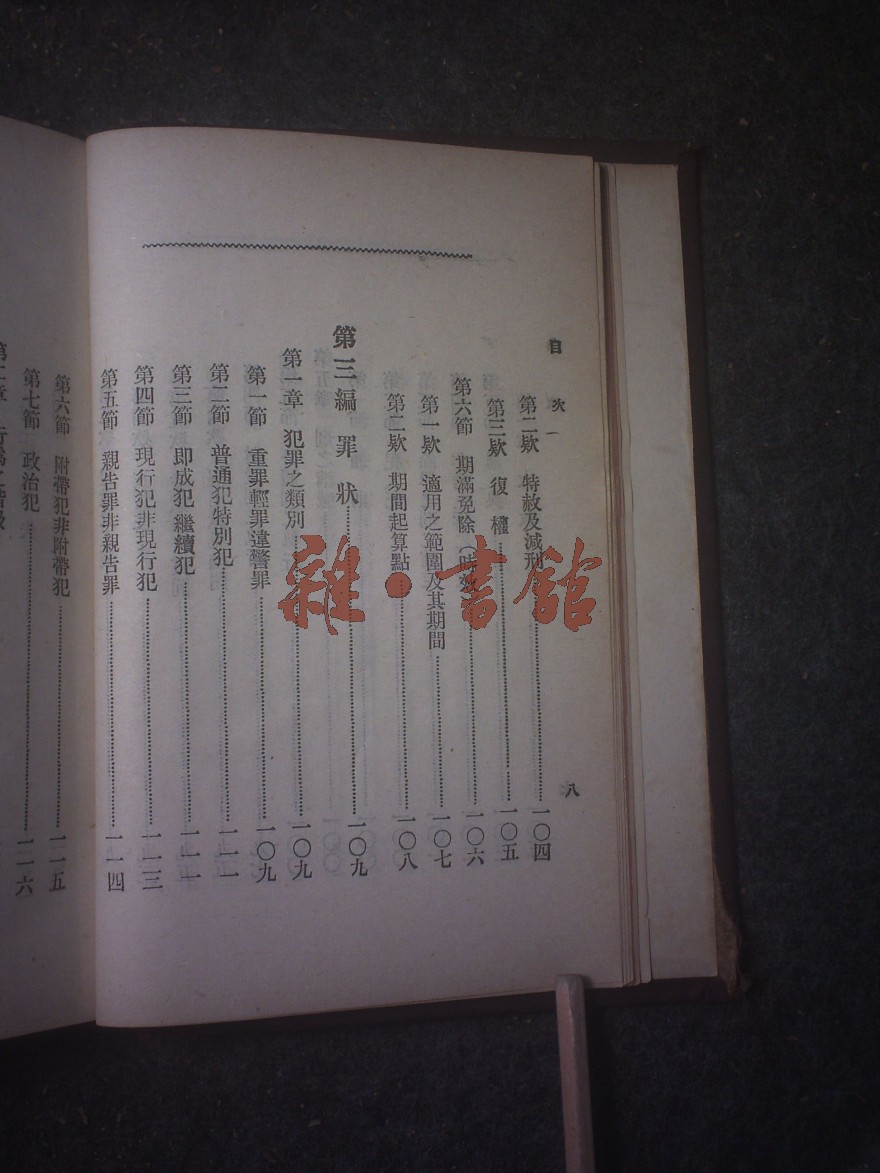 目次
八
第二欵 特赦及減刑 一〇四
第三欵 復權 一〇五
第六節 期滿免除（時效） 一〇六
第一欵 適用之範圍及其期間 一〇七
第二欵 期間起算點 一〇八
第三編 罪狀 一〇九
第一章 犯罪之類別 一〇九
第一節 重罪輕罪違警罪 一〇九
第二節 普通犯特別犯 一一一
第三節 即成犯繼續犯 一一一
第四節 現行犯非現行犯 一一三
第五節 親告罪非親告罪 一一四
第六節 附帶犯非附帶犯 一一五
第七節 政治犯 一一六
雜·書舘